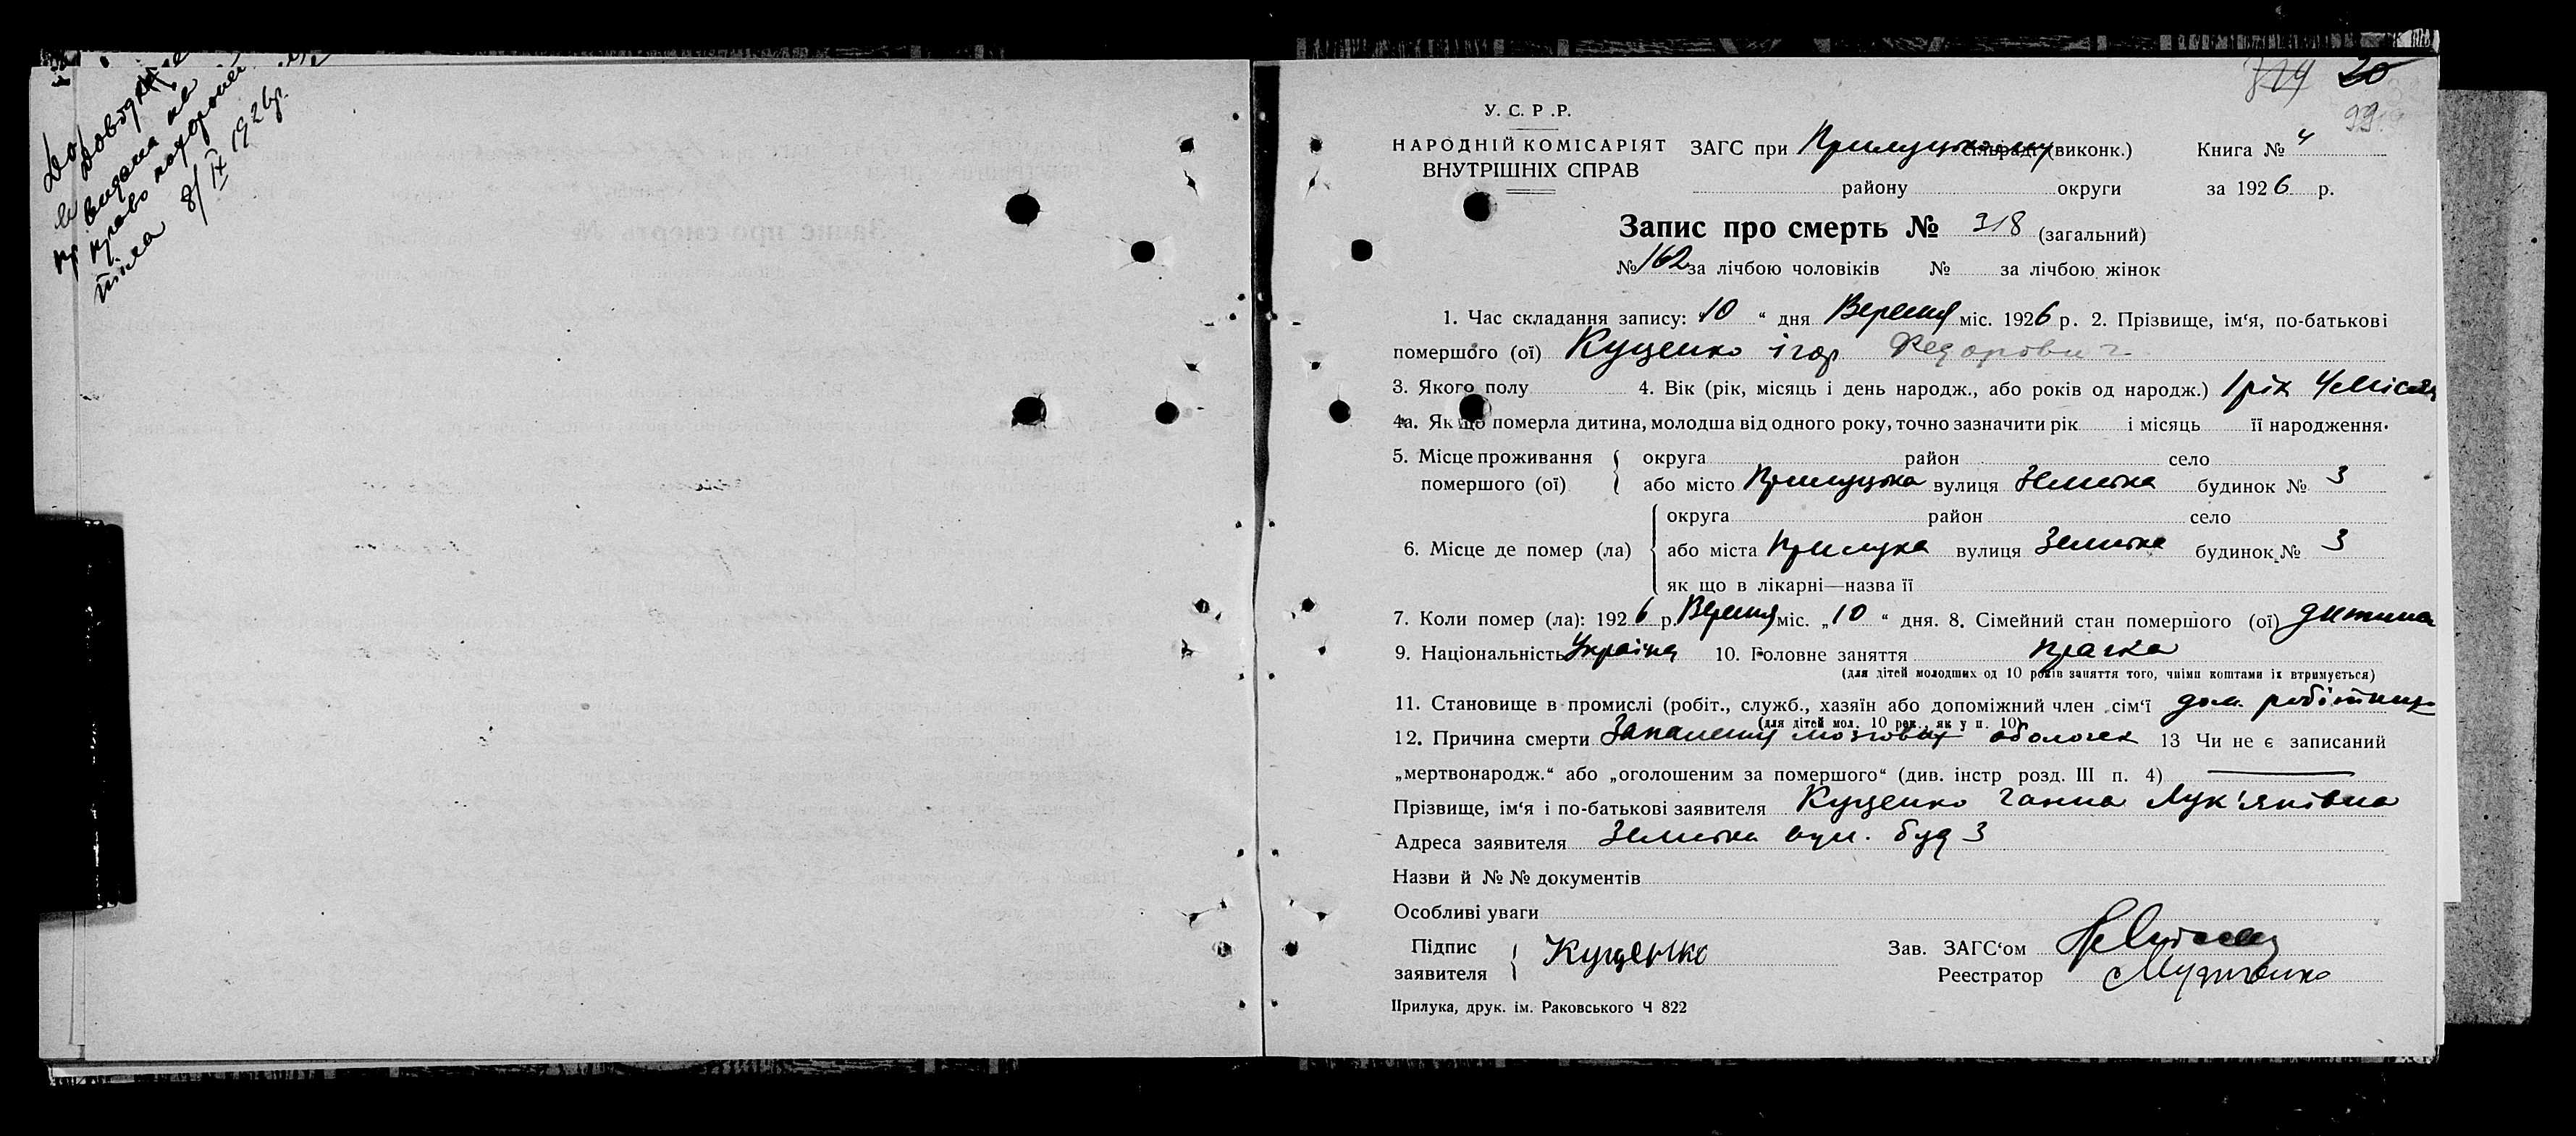 Довідка
видана на
право похорони
тіла 8/IX 1926р.
20
99
У. С. Р .Р.
НАРОДНІЙ КОМІСАРІЯТ
ВНУТРІШНІХ СПРАВ
ЗАГС при Прилуцькому сільраді (виконк.) Книга № 4
району округи за 1926 р.
Запис про смерть № 318 (загальний)
№ 162 за лічбою чоловіків № за лічбою жінок
1. Час складання запису: „10 “ дня Вересня міс. 1926 р. 2. Прізвище, ім‘я, по-батькові
помершого (ої) Куценко ігор Федорович
3. Якого полу 4. Вік (рік, місяць і день народж., або років од народж.) 1 рік 4 місяц
4а. Як що померла дитина, молодша від одного року, точно зазначити рік і місяць її народження.
5. Місце проживання помершого (ої) { округа район село
або місто Прилуцька вулиця Земська будинок № 3
6. Місце де помер (ла) { округа район село
або міста Прилука вулиця Земська будинок № 3
як що в лікарні—назва її
7. Коли помер (ла): 1926 р. Вересня міс. „10 “ дня. 8. Сімейний стан помершого (ої) дитина
9. Національність Україна 10. Головне заняття прачка
(для дітей молодших од 10 років заняття того, чиїми коштами їх втримується)
11. Становище в промислі (робіт., служб., хазяїн або допоміжний член сім‘ї дом. робітниця
(для дітей мол. 10 рок., як у п. 10)
12. Причина смерти Запалення мозгових оболочек 13 Чи не є записаний
„мертвонародж.“ або „оголошеним за помершого“ (див. інстр розд. III п. 4) —
Прізвище, ім‘я і по-батькові заявителя Куценко Ганна Лук'янівна
Адреса заявителя Земська вул. буд 3
Назви й № № документів
Особливі уваги
Підпис заявителя { Куценко
Зав. ЗАГС‘ом
Реестратор
Прилука, друк. ім. Раковського Ч 822